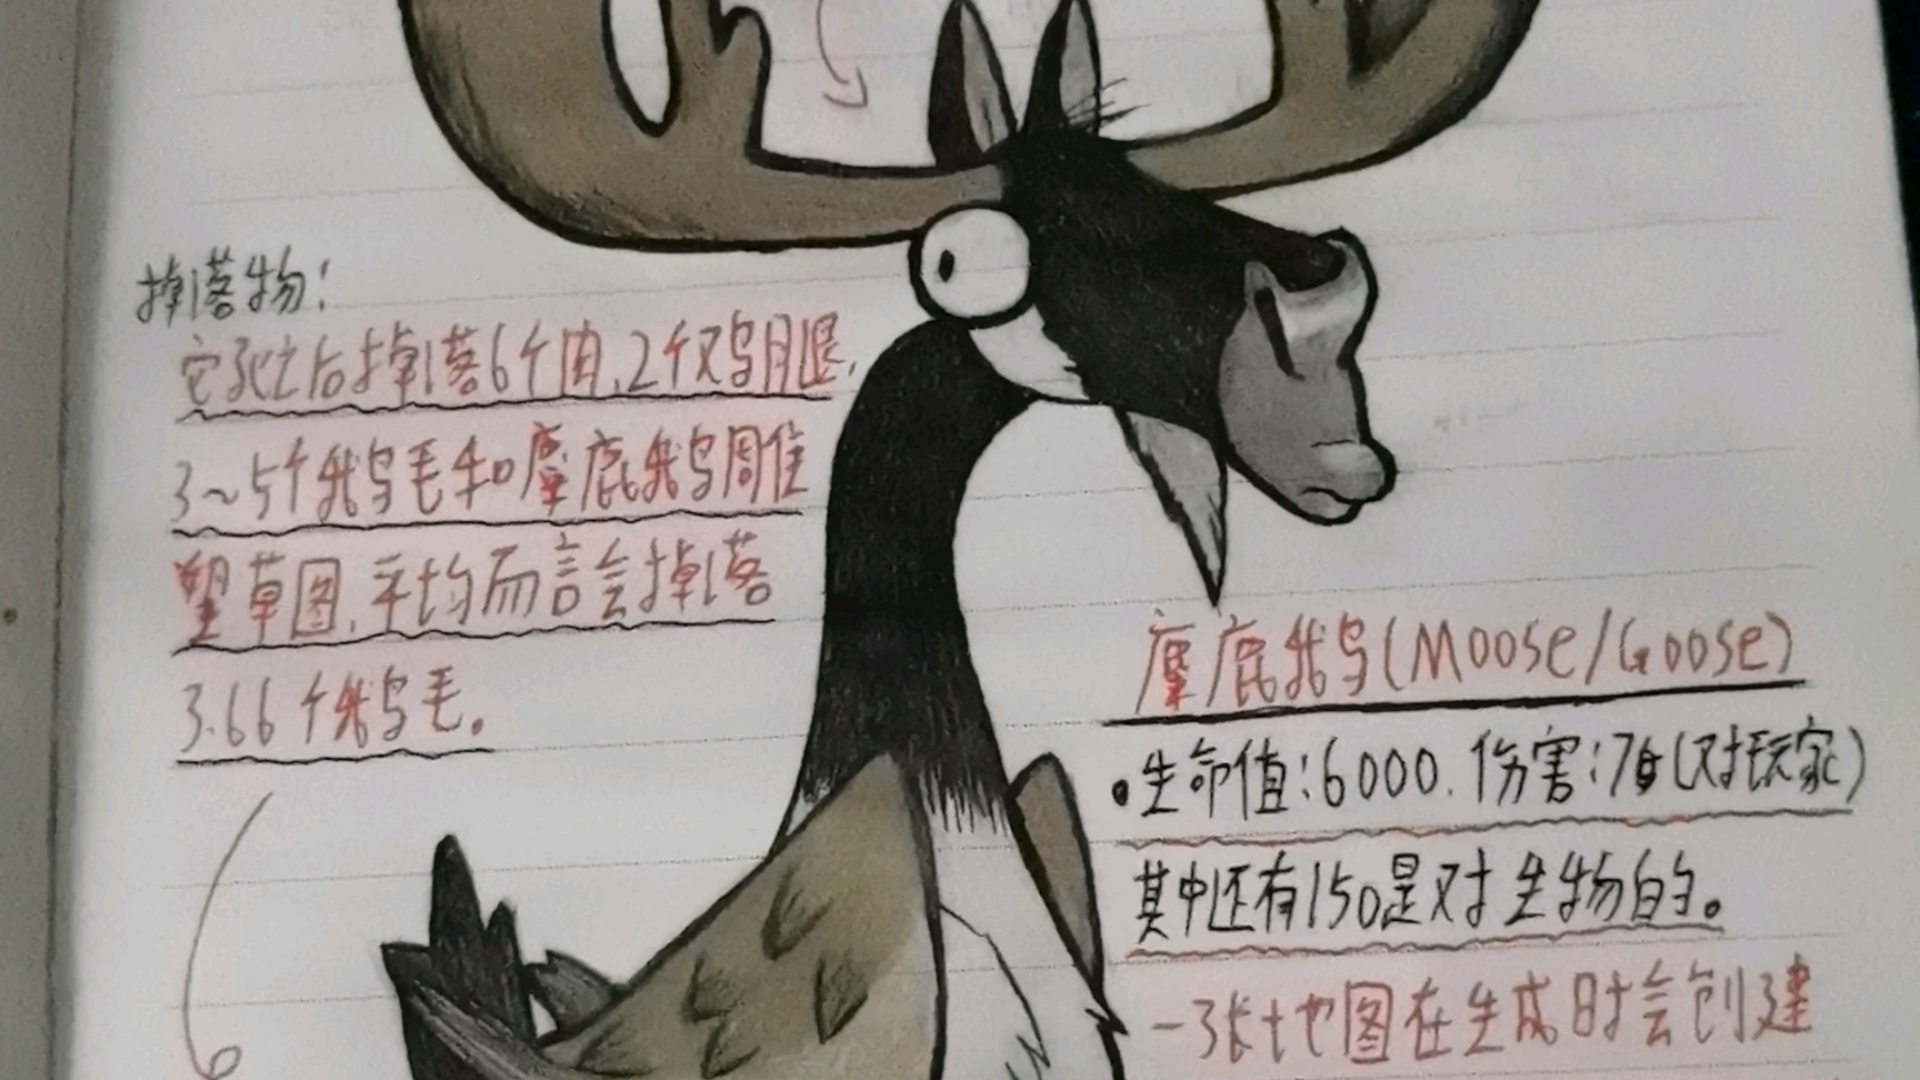 掉落物:
它死之后掉落6个肉,2个鸡腿,
3~5个鹅毛和麋鹿鹅雕住
望草图,平均而言会掉落
3.66个鹅毛。
麋鹿鹅(Moose/Goose)
•生命值:6000.伤害:(对玩家)
其中还有150是对生物的。
一张地图在生成时会创建